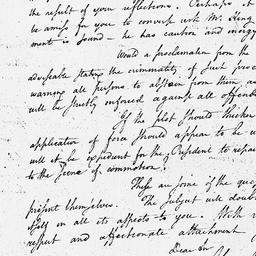 the result of your reflections. Perhaps it
be amiss for you to converse with Mr. King
ment is sound – he has caution and
Would a proclamation from the
adviseable stating the criminality of such
warning all persons to abstain from them an
will be strictly enforced against all offen
If the plot should thicken
application of force should appear to be u
will it be expedient for the President to repai
to the scene of commotion.
These are some of the que
present themselves. The subject will doub
itself in all its aspects to you. With
respect and affectionate attachment
Dear Sir